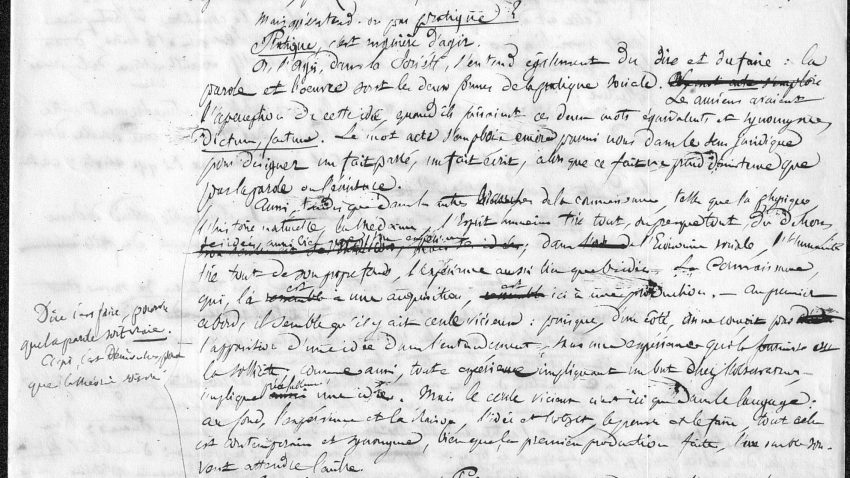 Mais qu'entend-on par pratique ?
Pratique, c'est manière d'agir.
Or, l'Agir, dans la Société, s'entend également du dire et du faire : la
parole et l'œuvre sont les deux formes de la pratique sociale.
Les anciens avaient
l'aperception de cette idée, quand ils faisaient ces deux mots équivalents et synonymes,
Dictum, factum. Le mot acte s'emploie encore parmi nous dans le sens juridique
pour désigner un fait parlé, un fait écrit, alors que ce fait ne prend d'existence que
par la parole ou l'écriture.
Aussi, tandis que dans les autres branches de la connaissance, telle que la physique,
l'histoire naturelle, la médecine, l'Esprit humain tire tout, ou presque tout, du dehors,
; dans de l'Économie sociale, l'humanité
tire tout de son propre fond, l'expérience aussi bien que l'idée. La Connaissance,
qui, là est une acquisition, est ici une production. — Au premier
abord, il semble qu'il y ait cercle vicieux : puisque, d'un côté, on ne conçoit pas
l'apparition d'une idée dans l'entendement, sans une expérience qui la
la sollicite, comme aussi, toute expérience impliquant un but chez l'observateur,
implique une idée. Mais le cercle vicieux n'est ici que dans le langage.
au fond, l'expérience et la raison, l'idée et l'objet, le penser et le faire, tout cela
est contemporain et synonyme, bien que, la première production faite, l'une semble sou-
vent attendre l'autre.
Dire sans faire, pourvu
que la parole soit vraie.